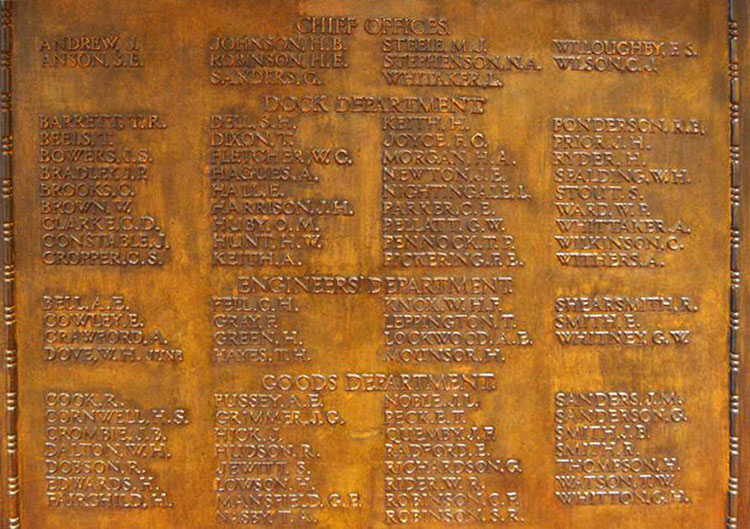 CHIEF OFFICES.
ANDREW, J. JOHNSON, H.B. STEELE, M.J. WILLOUGHBY, E.S.
ANSON, S.E. ROBINSON, H.E. STEPHENSON, N.A. WILSON, C.J.
SANDERS, G. WHITAKER, L.
DOCK DEPARTMENT
BARRETT, T.R. DELL, S.H. KEITH, H. PONDERSON, R.B.
BEEIS, T. DIXON, T. JOYCE, F.C. PRIOR, J.H.
BOWERS, J.S. FLETCHER, W.C. MORGAN, H.A. RYDER, H.
BRADLEY, J.P. HAGUES, A. NEWTON, J.E. SPALDING, W.H.
BROOKS, C. HALL, E. NIGHTINGALE, L. STOUT, S.
BROWN, W. HARRISON, J.H. PARKER, C.E. WARD, W.P.
CLARKE, G.D. HUBY, O.M. PELLATT, G.W. WHITTAKER, A.
CONSTABLE, J. HUNT, H.W. PENNOCK, T.P. WILKINSON, C.
CROPPER, C.S. KEITH, A. PICKERING, F.E. WITHERS, A.
ENGINEERS' DEPARTMENT
BELL, A.E. FELL, C.H. KNOX, W.H.F. SHEARSMITH, R.
COWLEY, E. GRAY, F. LEPPINGTON, T. SMITH, E.
CRAWFORD, A. GREEN, H. LOCKWOOD, A.E. WHITNEY, G.W.
DOVE, W.H. JUNR HAYES, T.H. MOUNSOR, H.
GOODS DEPARTMENT.
COOK, R. FUSSEY, A.E. NOBLE, J.L. SANDERS, J.M.
CORNWELL, H.S. GRIMMER, J.G. PECK, E.T. SANDERSON, G.
CROMBIE, J.B. HICK, J. QUEMBY, J.P. SMITH, J.B.
DALTON, W.H. HUDSON, R. RADFORD, E. SMITH, R.
DOBSON, R. JEWITT, S. RICHARDSON, G. THOMPSON, H.
EDWARDS, H. LOWSON, H. RIDER, W.R. WATSON, T.W.
FAIRCHILD, H. MANSFIELD, G.F. ROBINSON, G.F. WHITTON, G.H.
NASBY, T.A. ROBINSON, S.R.